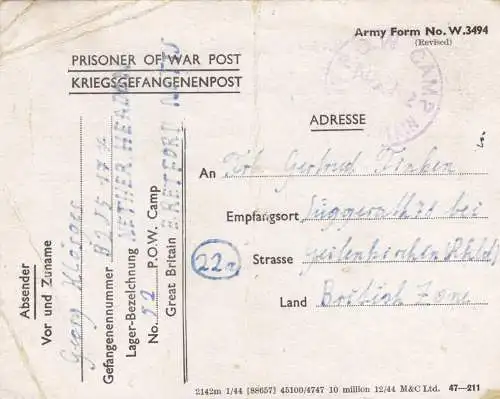 Army Form No. W.3494
(Revised)
PRISONER OF WAR POST
KRIEGSGEFANGENENPOST
CAMP
ADRESSE
An Frl. Gertrud Finken
Empfangsort Süggerath 78 bei
22a
Strasse Geilenkirchen (Rhld)
Land British Zone
Absender
Vor und Zuname Georg
Gefangenennummer
Lager-Bezeichnung NETHER HEADON
No. 52 P.O.W. Camp
Great Britain RETFORD NOTTS
2142m 1/44 [88657] 45100/4747 10 million 12/44 M&C Ltd. 47—211